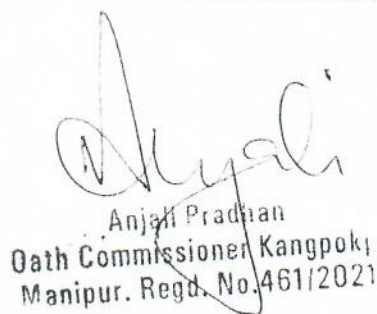 Anjali
Anjali Pradhan
Oath Commissioner Kangpokpi
Manipur. Regd. No.461/2021